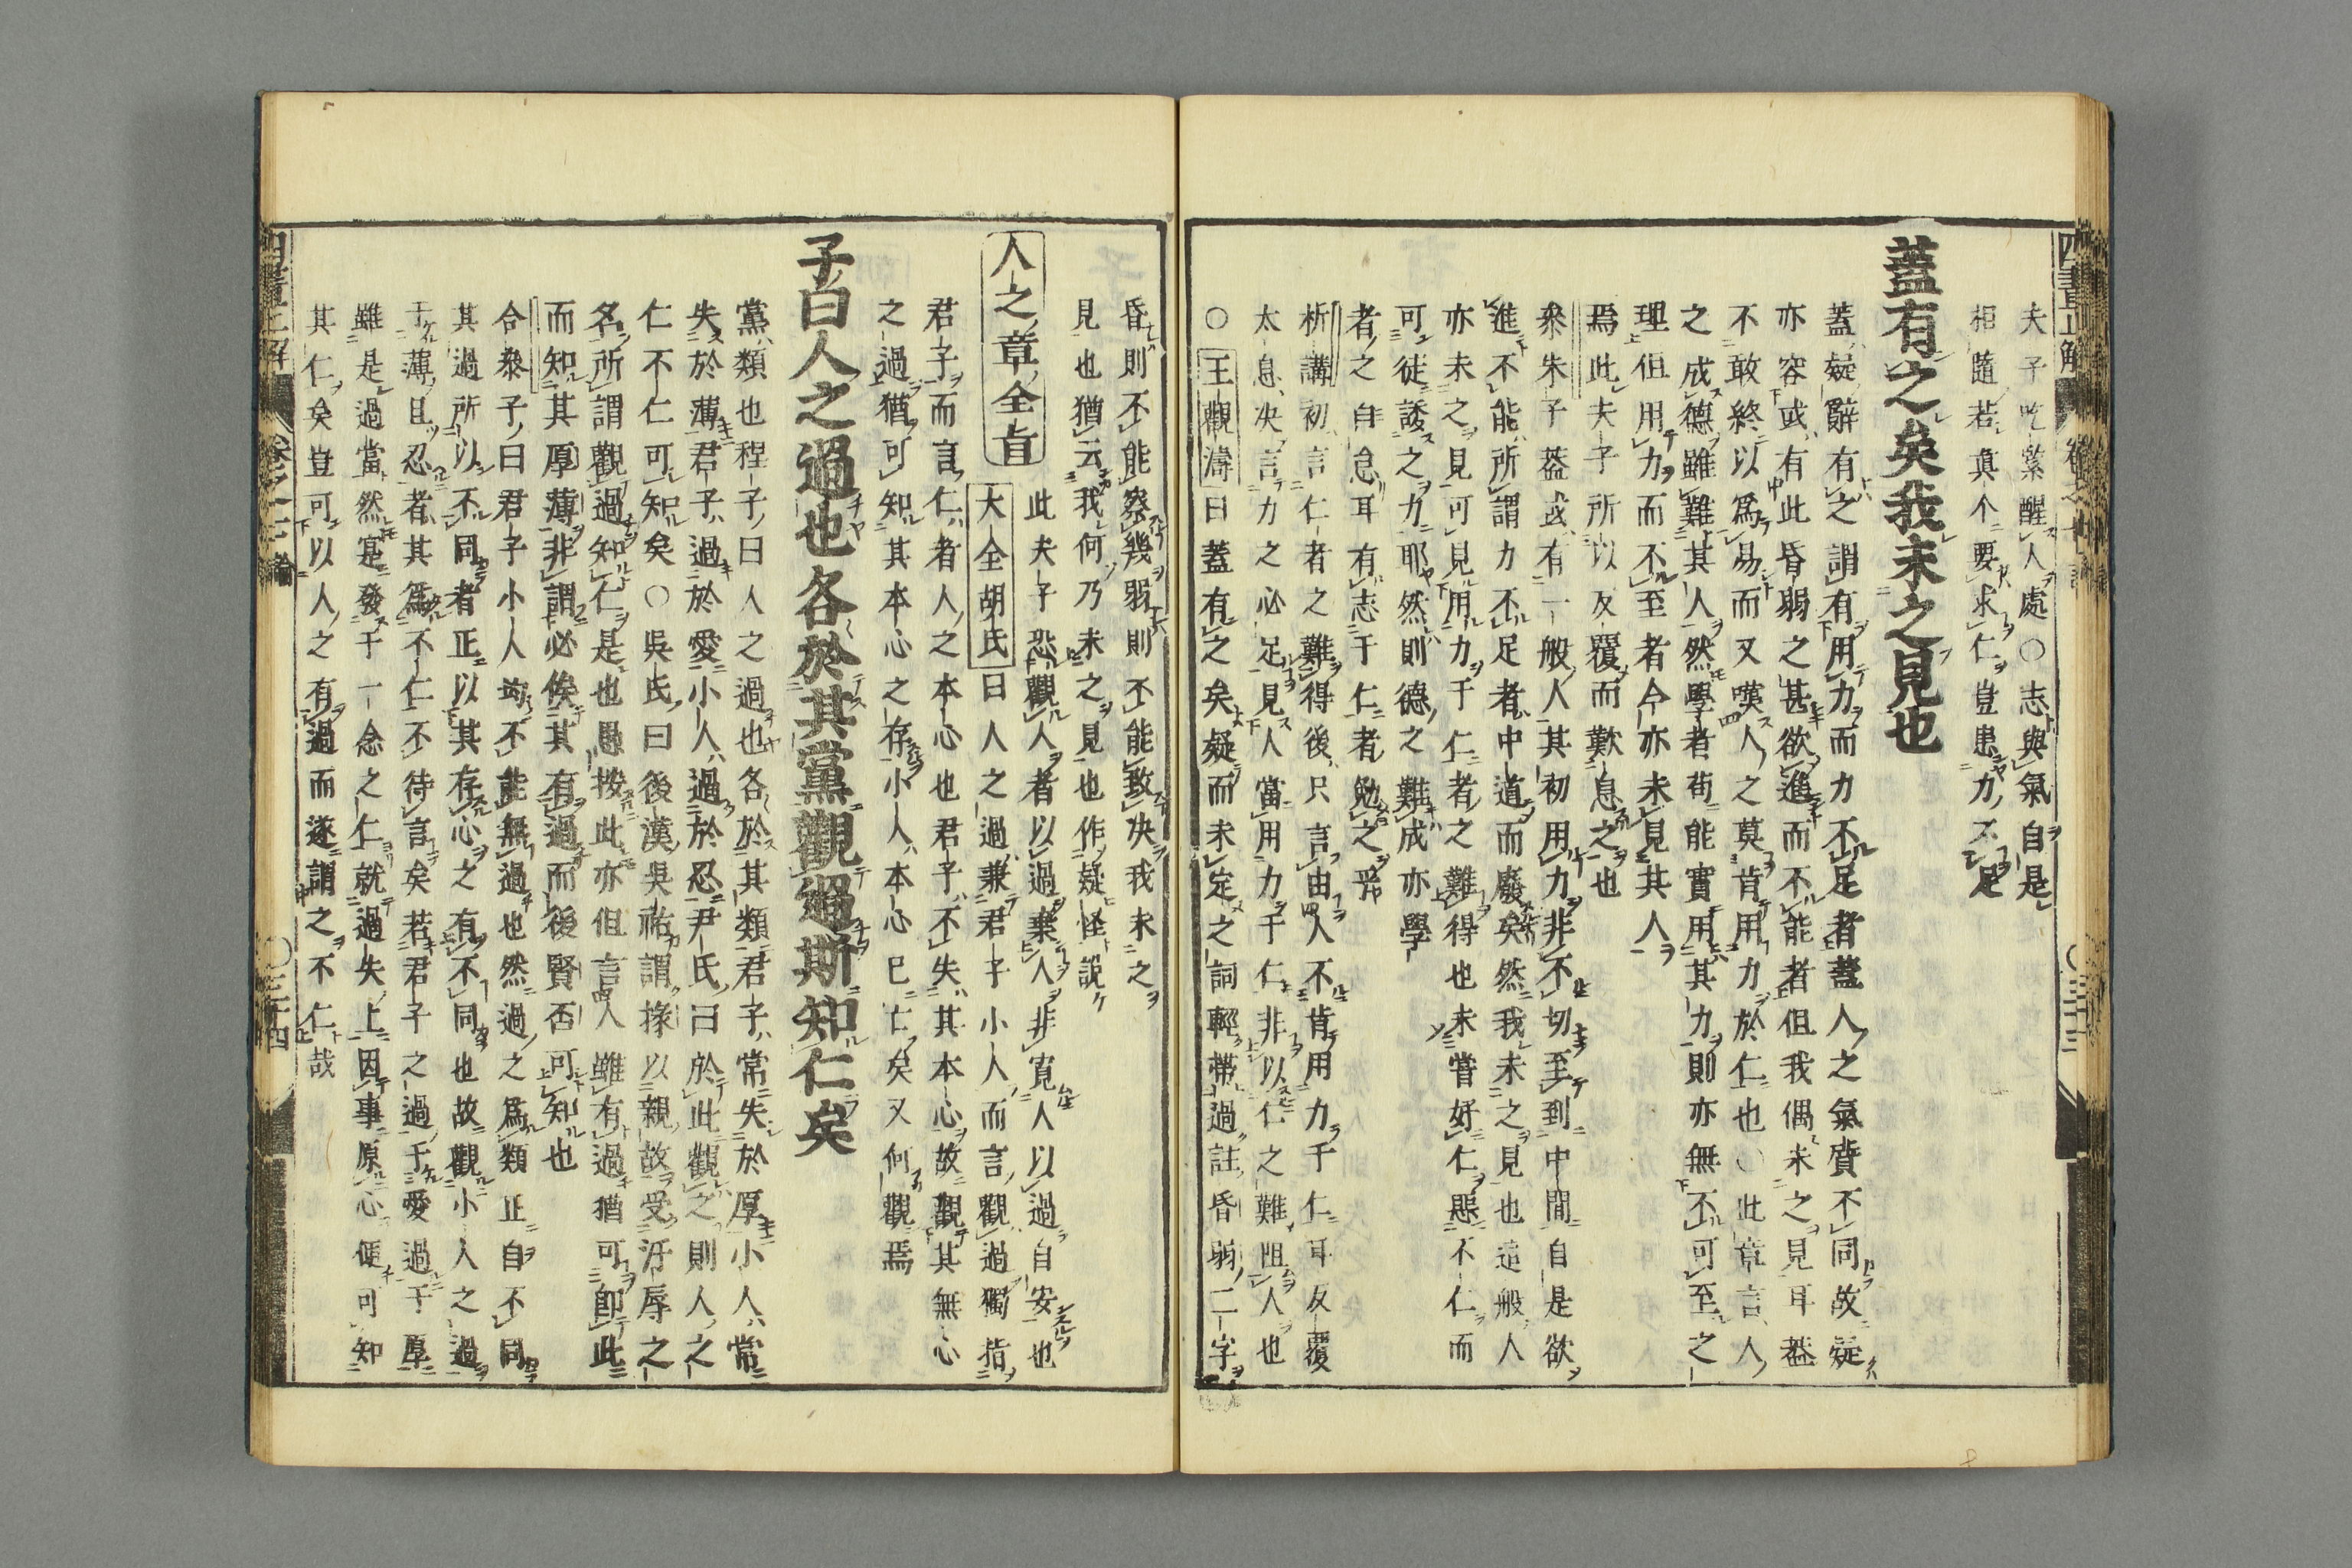 夫子吃緊醒人處○志與氣自是
相隨若眞个要求仁豈患力不足
蓋有之矣我未之見也
蓋疑辭有之謂有用力而力不足者蓋人之氣質不同故疑
亦容或有此昏弱之甚欲進而不能者但我偶未之見耳蓋
不敢終以爲易而又嘆人之莫肯用力於仁也○此章言人
之成德雖難其人然學者苟能實用其力則亦無不可至之
理但用力而不至者今亦未見其人
焉此夫子所以反覆而歎息之也
衆朱子蓋或有一般人其初用力非不切至到中間自是欲
進不能所謂力不足者中道而廢矣然我未之見也這般人
亦未之見可見用力于仁者之難得也未嘗好仁惡不仁而
可徒諉之力耶然則德之難成亦學
者之自怠耳有志于仁者勉之哉
析講初言仁者之難得後只言由人不肯用力于仁耳反覆
太息決言力之必足見人當用力于仁非以仁之難阻人也
○王觀濤曰蓋有之矣疑而未定之詞輕帶過註昏弱二字
昏則不能察幾弱則不能致決我未之
見也猶云我何乃未之見也作疑怪說
人之章全旨 此夫子恐觀人者以過棄人非寬人以過自安也
大全胡氏曰人之過兼君子小人而言觀過獨指
君子而言仁者人之本心也君子不失其本心故觀其無心
之過猶可知其本心之存小人本心已亡矣又何觀焉
子曰人之過也各於其黨觀過斯知仁矣
黨類也程子曰人之過也各於其類君子常失於厚小人常
失於薄君子過於愛小人過於忍尹氏曰於此觀之則人之
仁不仁可知矣○吳氏曰後漢吳祐謂掾以親故受汙辱之
名所謂觀過知仁是也愚按此亦但言人雖有過猶可卽此
而知其厚薄非謂必俟其有過而後賢否可知也
合衆子曰君子小人均不能無過也然過之爲類正自不同
其過所以不同者正以其存心之有不同也故觀小人之過
于薄且忍者其爲不仁不待言矣若君子之過于愛過于厚
雖是過當然寔發于一念之仁就過失上因事原心便可知
其仁矣豈可以人之有過而遂謂之不仁哉
四書正解
卷之七論
○三十三
四書正解
卷之七論
○三十四